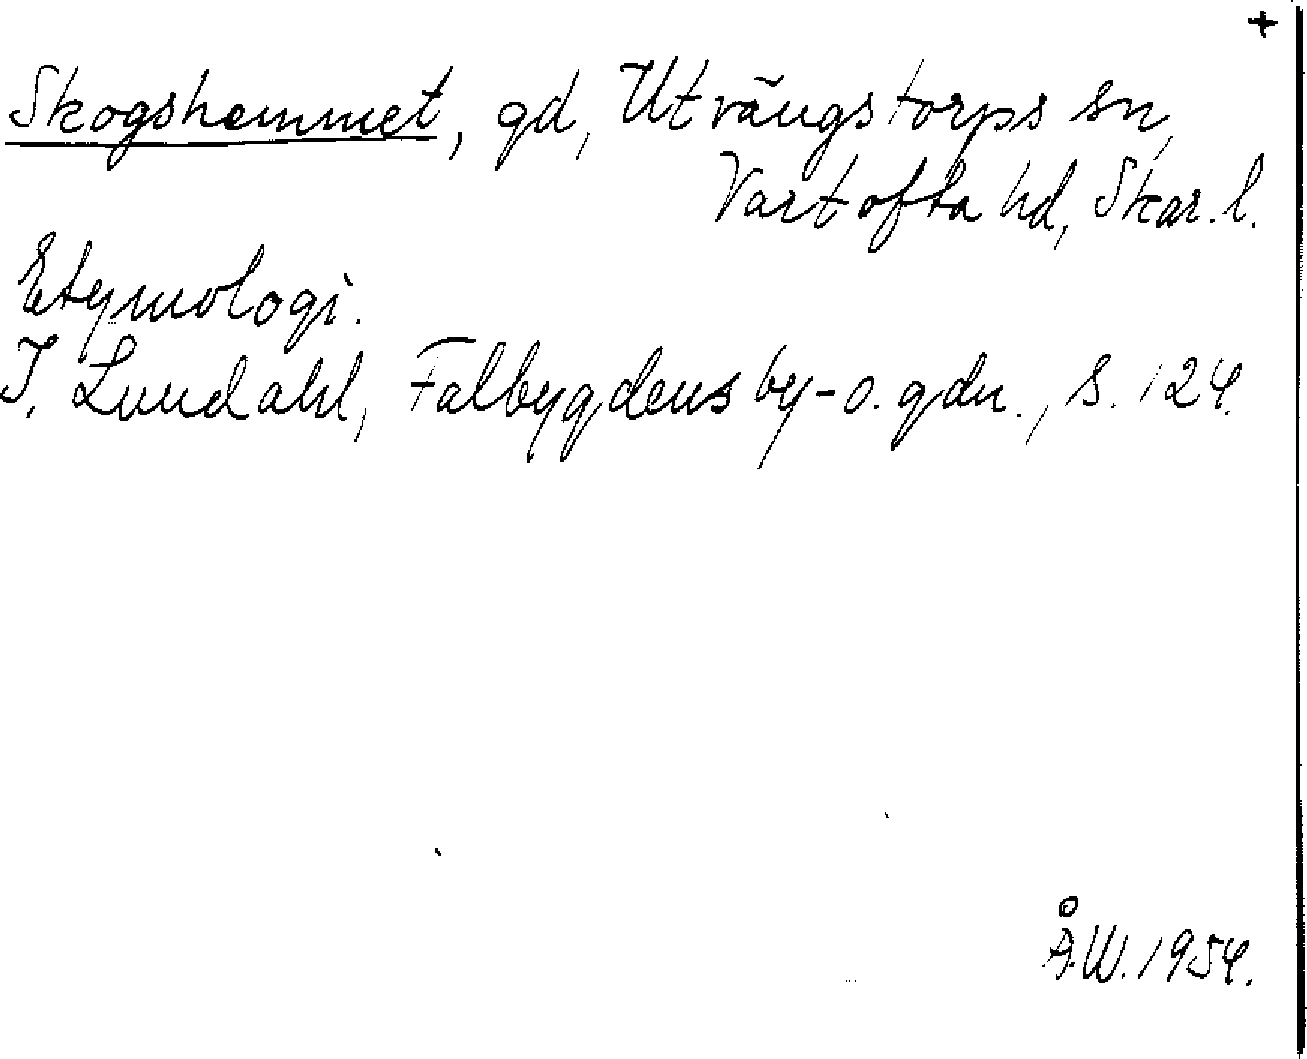 +
Skogshemmet, gd, Utvängstorps sn,
Vartofta hd, Skar. l.
Etymologi.
I. Lundahl, Falbygdens by- o. gdn., s. 124.
Å.W. 1954.